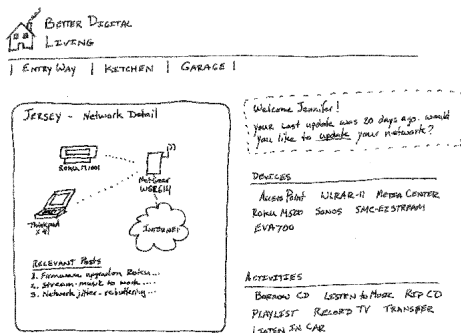 BETTER DIGITAL
LIVING
| ENTRY WAY | KITCHEN | GARAGE |
JERSEY - Network Detail
Roku M1001
NetGear
WGR614
Thinkpad
X41
INTERNET
RELEVANT Posts
1. Firmware upgrade on Roku...
2. Stream-music to work....
3. Network jitter - rebuffering...
Welcome Jennifer!
your last update was 20 days ago. would
you like to update your network?
DEVICES
Access Point WLRAR-11 Media Center
Roku M500 Sonos SMC-EZSTREAM
EVA700
ACTIVITIES
BORROW CD LISTEN to MUSIC RIP CD
PLAYLIST RECORD TV TRANSFER
LISTEN IN CAR